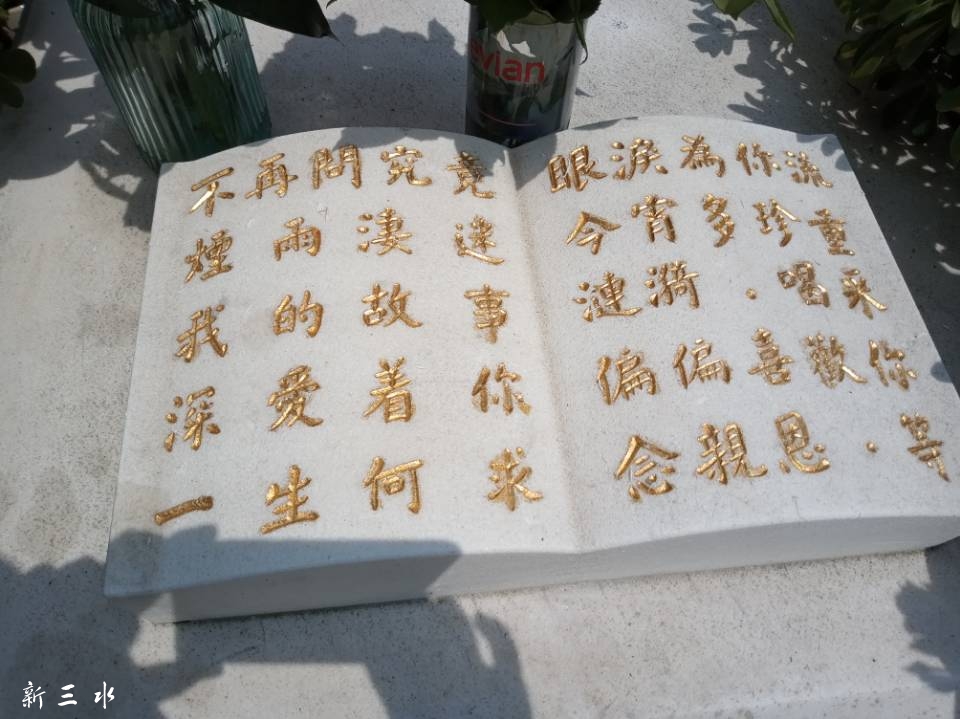 evian
不再問究竟
煙雨淒迷
我的故事
深愛着你
一生何求
眼淚為你流
今宵多珍重
漣漪．喝采
偏偏喜歡你
念親恩．等
新三水